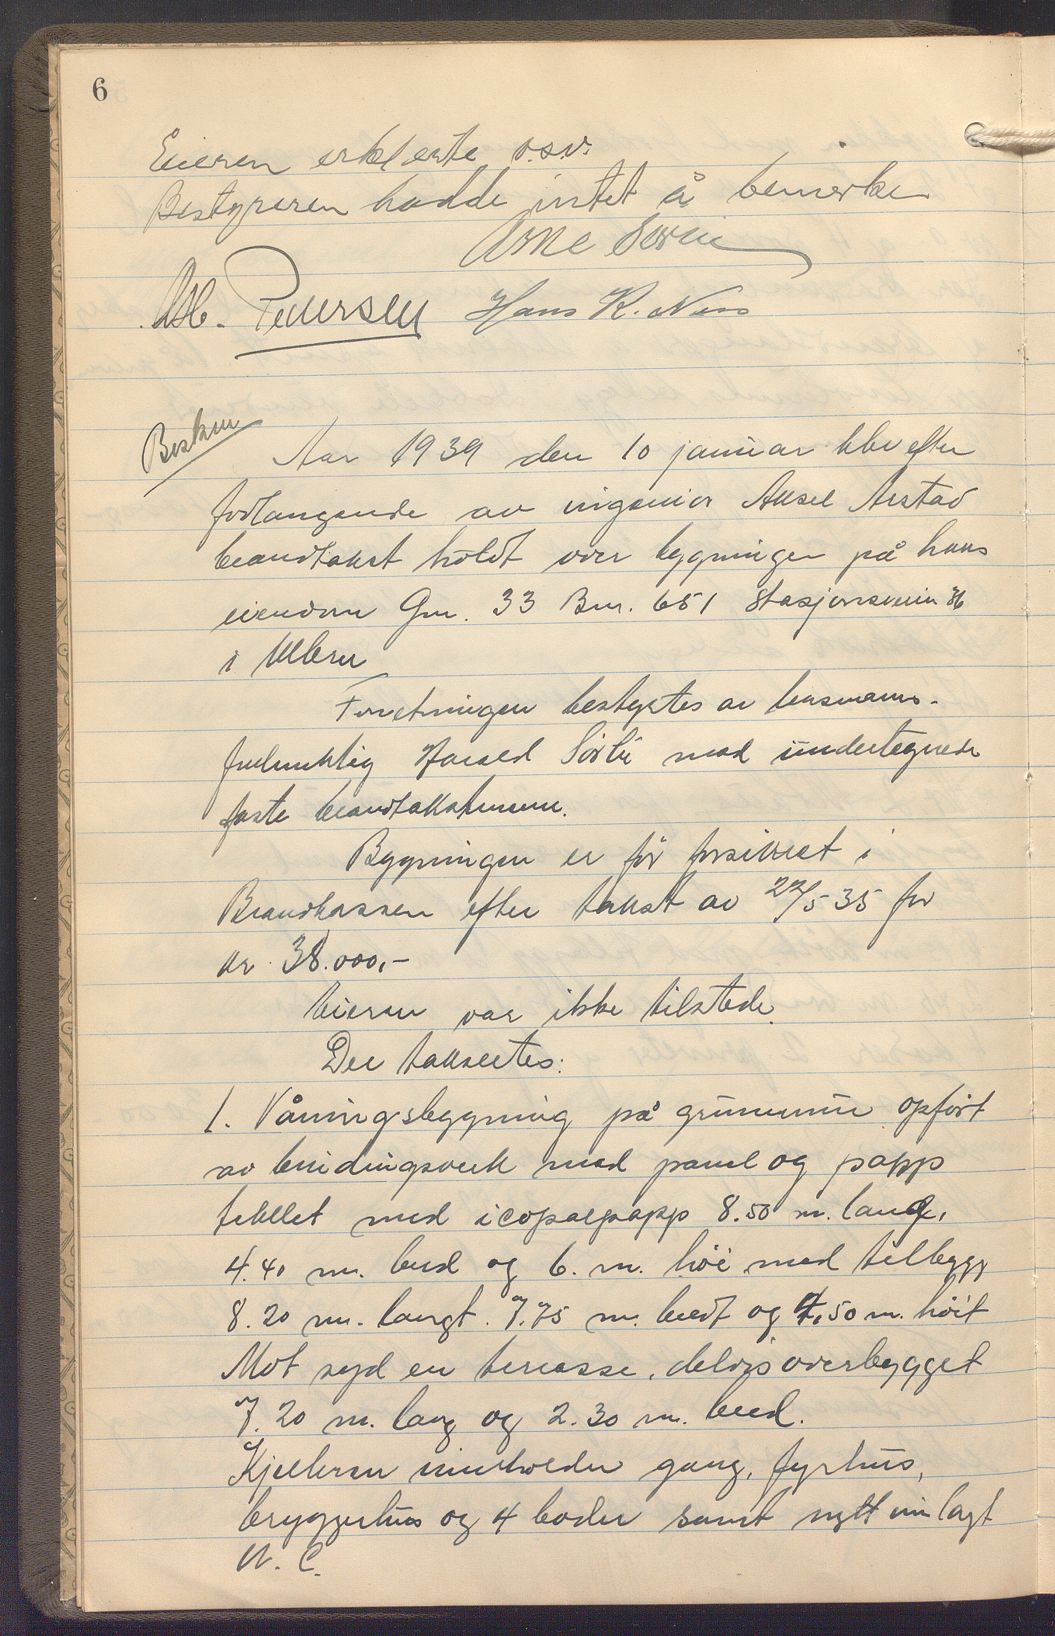 6
Eieren erklærte o.s.v.
Bestyreren hadde intet å bemerke
Arne
Pedersen Hans K. Næss
Aar 1939 den 10 januar blev efter
forlangende av ingeniør Aksel Arstad
brandtakst holdt over bygningen på hans
eiendom Gnr. 33 Bnr. 651 Stasjonsveien 86
i Ullern
Forretningen bestyrtes av lensmanns-
fuldmektig Harald Sørli med undertegnede
faste brandtakstmenn.
Bygningen er før forsikret i
Brandkassen efter takst av 22/5 35 for
kr. 38.000,-
Eieren var ikke tilstede.
Der taksertes:
1. Våningsbygning på grunnmur opført
av bindingsverk med panel og papp
tekket med icopalpapp 8.50 m. lang,
4.40 m. bred og 6. m. høi med tilbygg
8.20 m. langt. 7.75 m. bredt og 4,50 m. høit
Mot syd en terrasse, delvis overbygget
7.20 m. lang og 2.30 m. bred.
Kjelleren inneholder gang, fyrhus,
bryggerhus og 4 boder samt nytt innlagt
W. C.